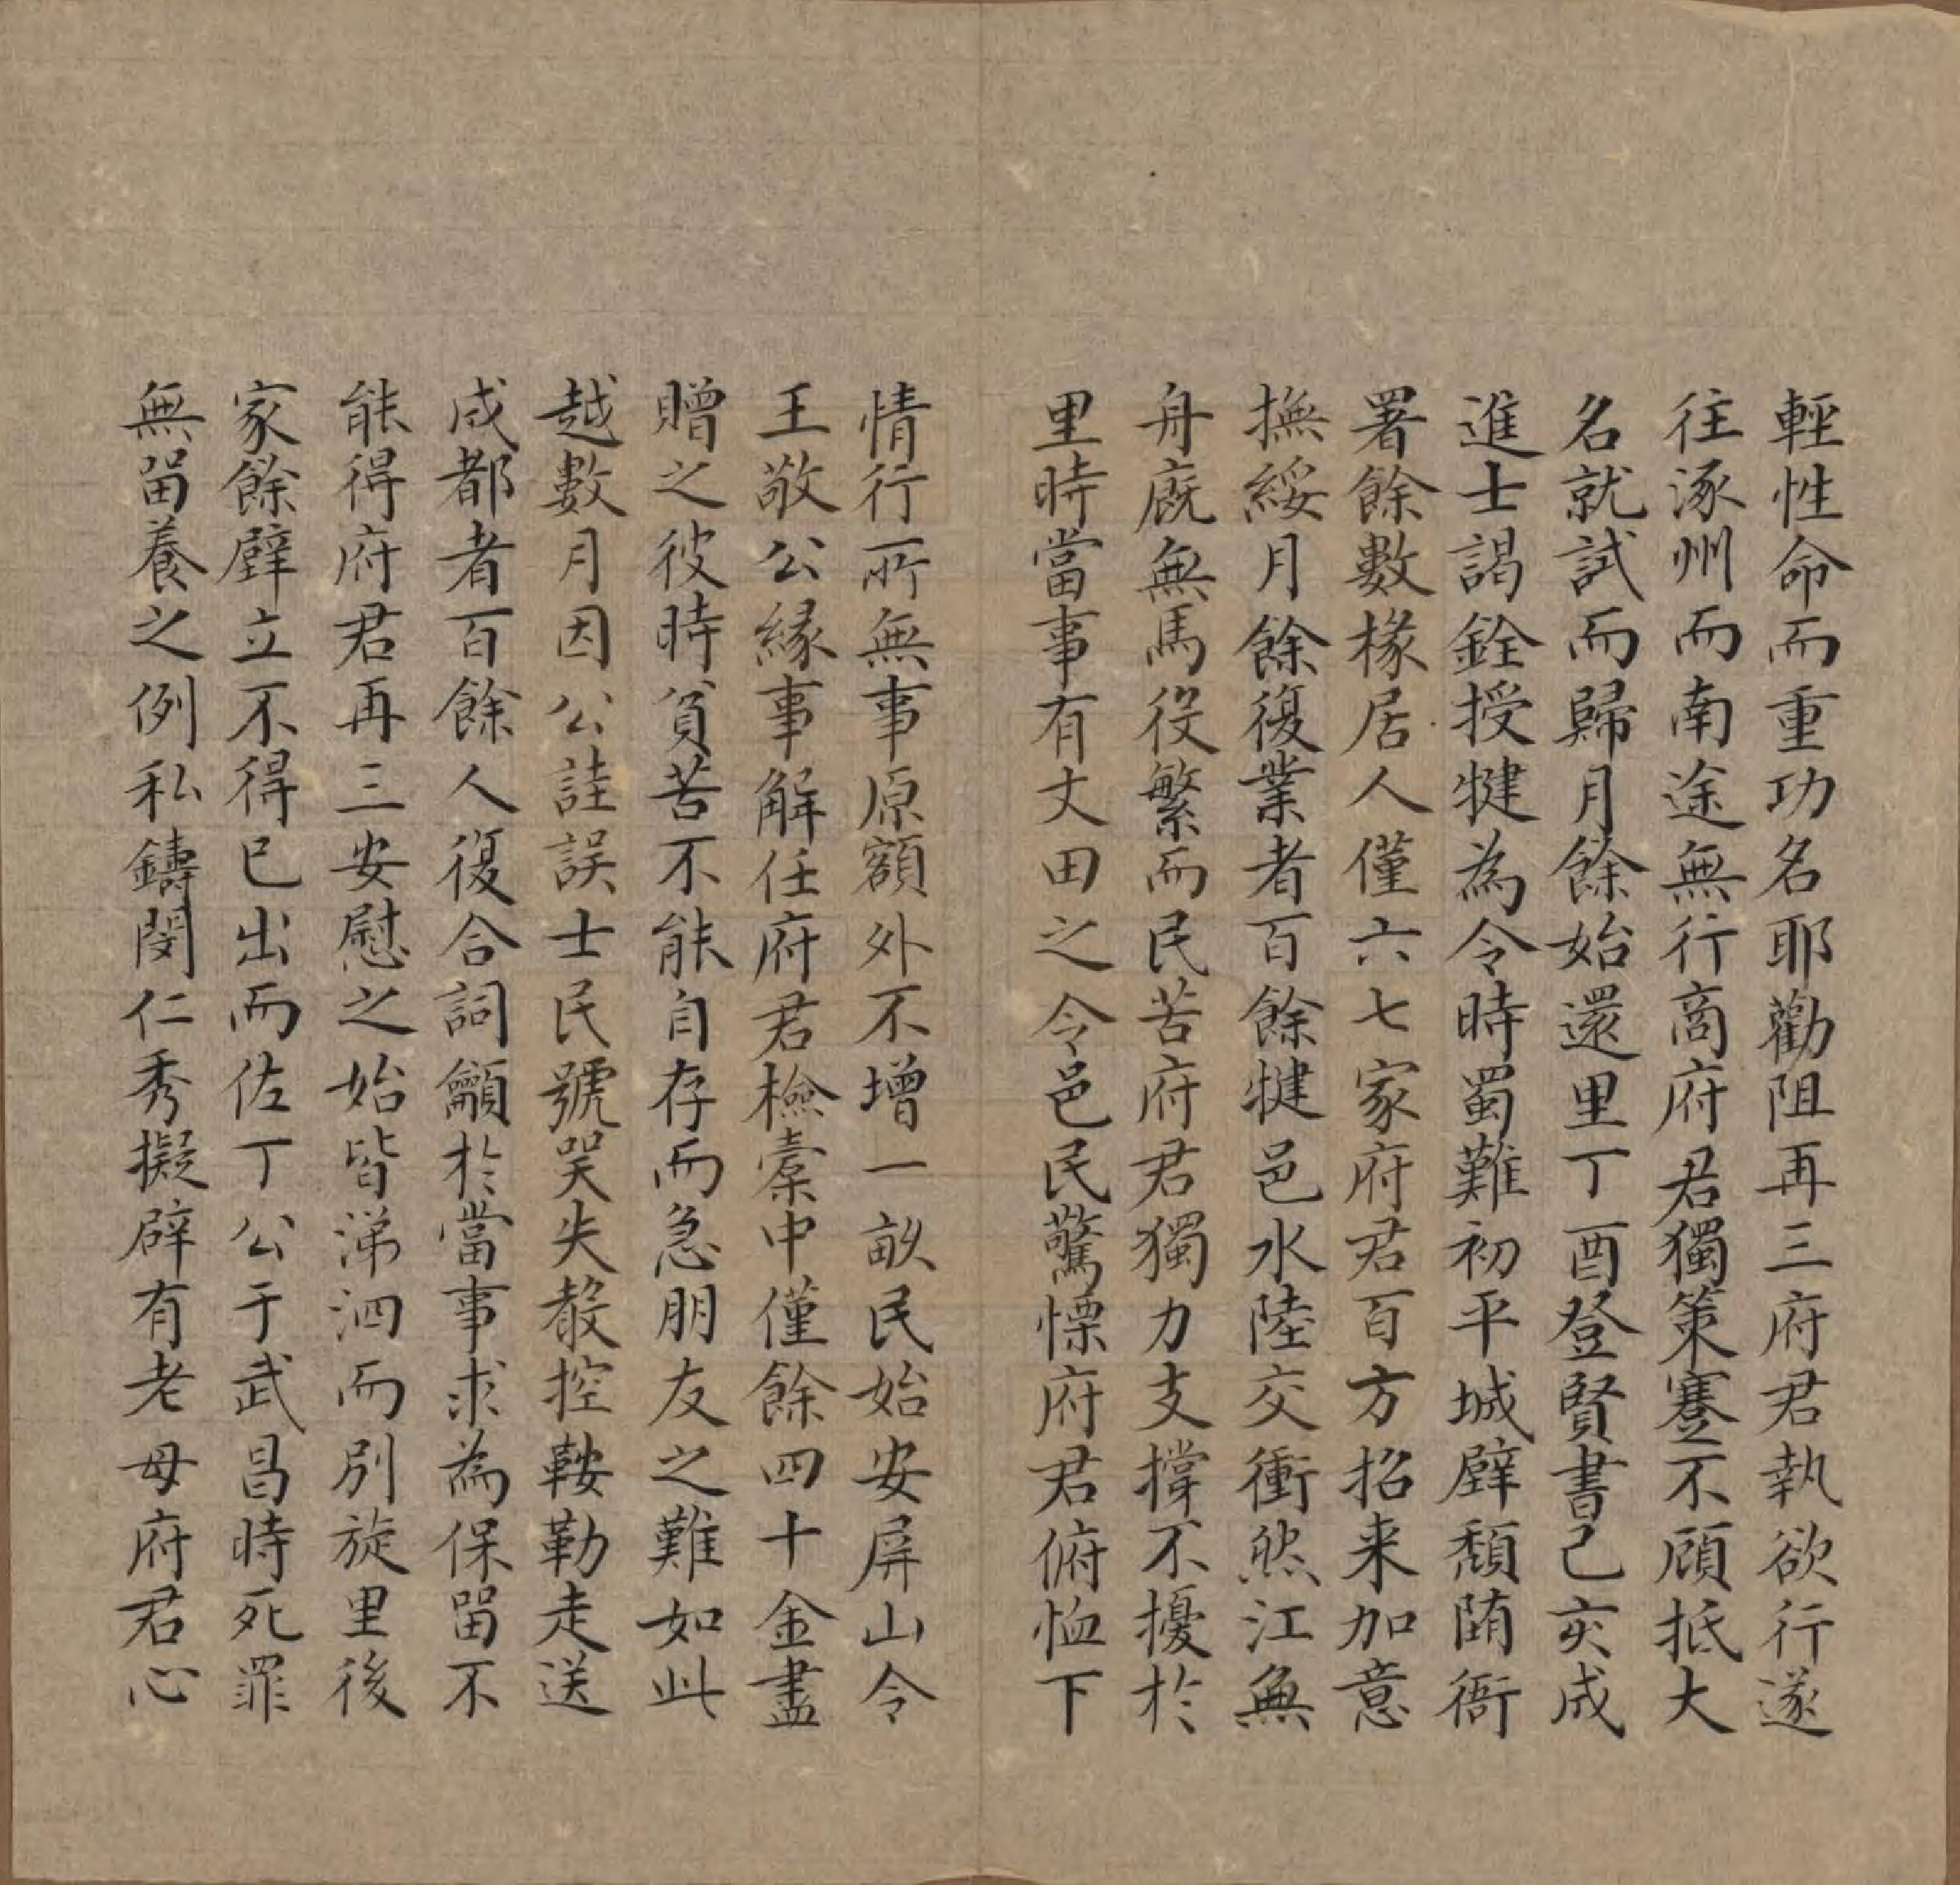 輕性命而重功名耶勸阻再三府君執欲行遂
往涿州而南途無行商府君獨策蹇不顧抵大
名就試而歸月餘始還里丁酉登賢書己亥成
進士謁銓授犍為令時蜀難初平城壁頹陊衙
署餘數椽居人僅六七家府君百方招来加意
撫綏月餘復業者百餘犍邑水陸交衝然江無
舟廐無馬役繁而民苦府君獨力支撐不擾於
里時當事有丈田之令邑民驚慄府君俯恤下
情行所無事原額外不增一畝民始安屏山令
王敬公緣事解任府君檢橐中僅餘四十金盡
贈之彼時貧苦不能自存而急朋友之難如此
越數月因公詿誤士民號哭失聲控鞍勒走送
成都者百餘人復合詞籲於當事求為保留不
能得府君再三安慰之始皆涕泗而別旋里後
家餘壁立不得已出而佐丁公于武昌時死罪
無留養之例私鑄閔仁秀擬辟有老母府君心